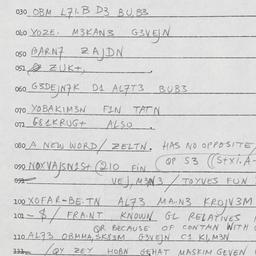 030 OBM L71.B D3 BU,B3
040 YOZE. M3KAN3 G3VEJN
050 BARN7 ZAJDN
051 ZUK+,
060 G3DEJN7K D1 AL7T3 BUB3
070 YOBAKIM3N F1N TATN
071 ALSO.
080 A NEW WORD/ ZELTN. HAS NO OPPOSITE/
OP 53 ((St+1.A-
090 (210 FIN
091 VEJ,M3N3 / TOYVES FUN
100 XOFAR-BE.TN AL73 MA.N3 KROJV3M
101 - $/ FRAINT KNOWN GL RELATIVES
OR BECAUSE OF CONTAM WITH
110 AL73 G3VEJN C1 K1,M3N
111 /QY ZEY HOBN GEHAT MASKIM GEVEN